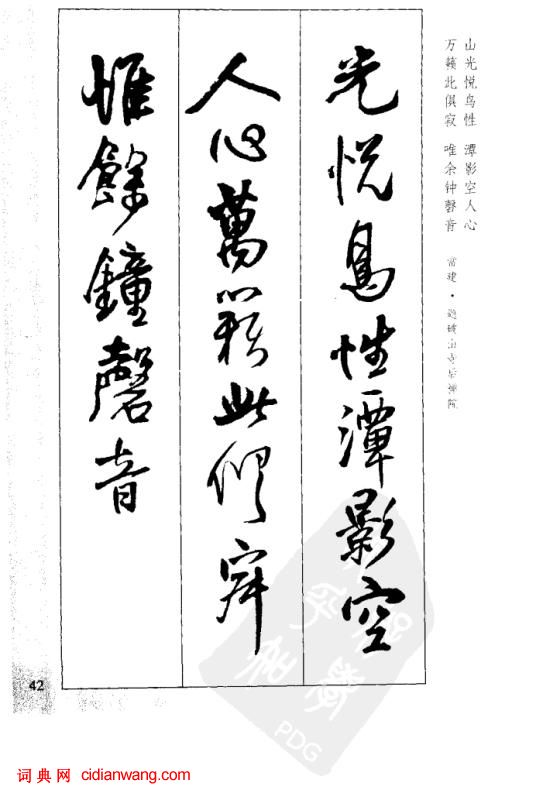 山光悦鸟性 潭影空人心
万籁此俱寂 唯余钟磬音
常建·题破山寺后禅院
光悦鳥性潭影空
人心萬籟此俱寂
惟餘鐘磬音
42
PDG
词典网 cidianwang.com